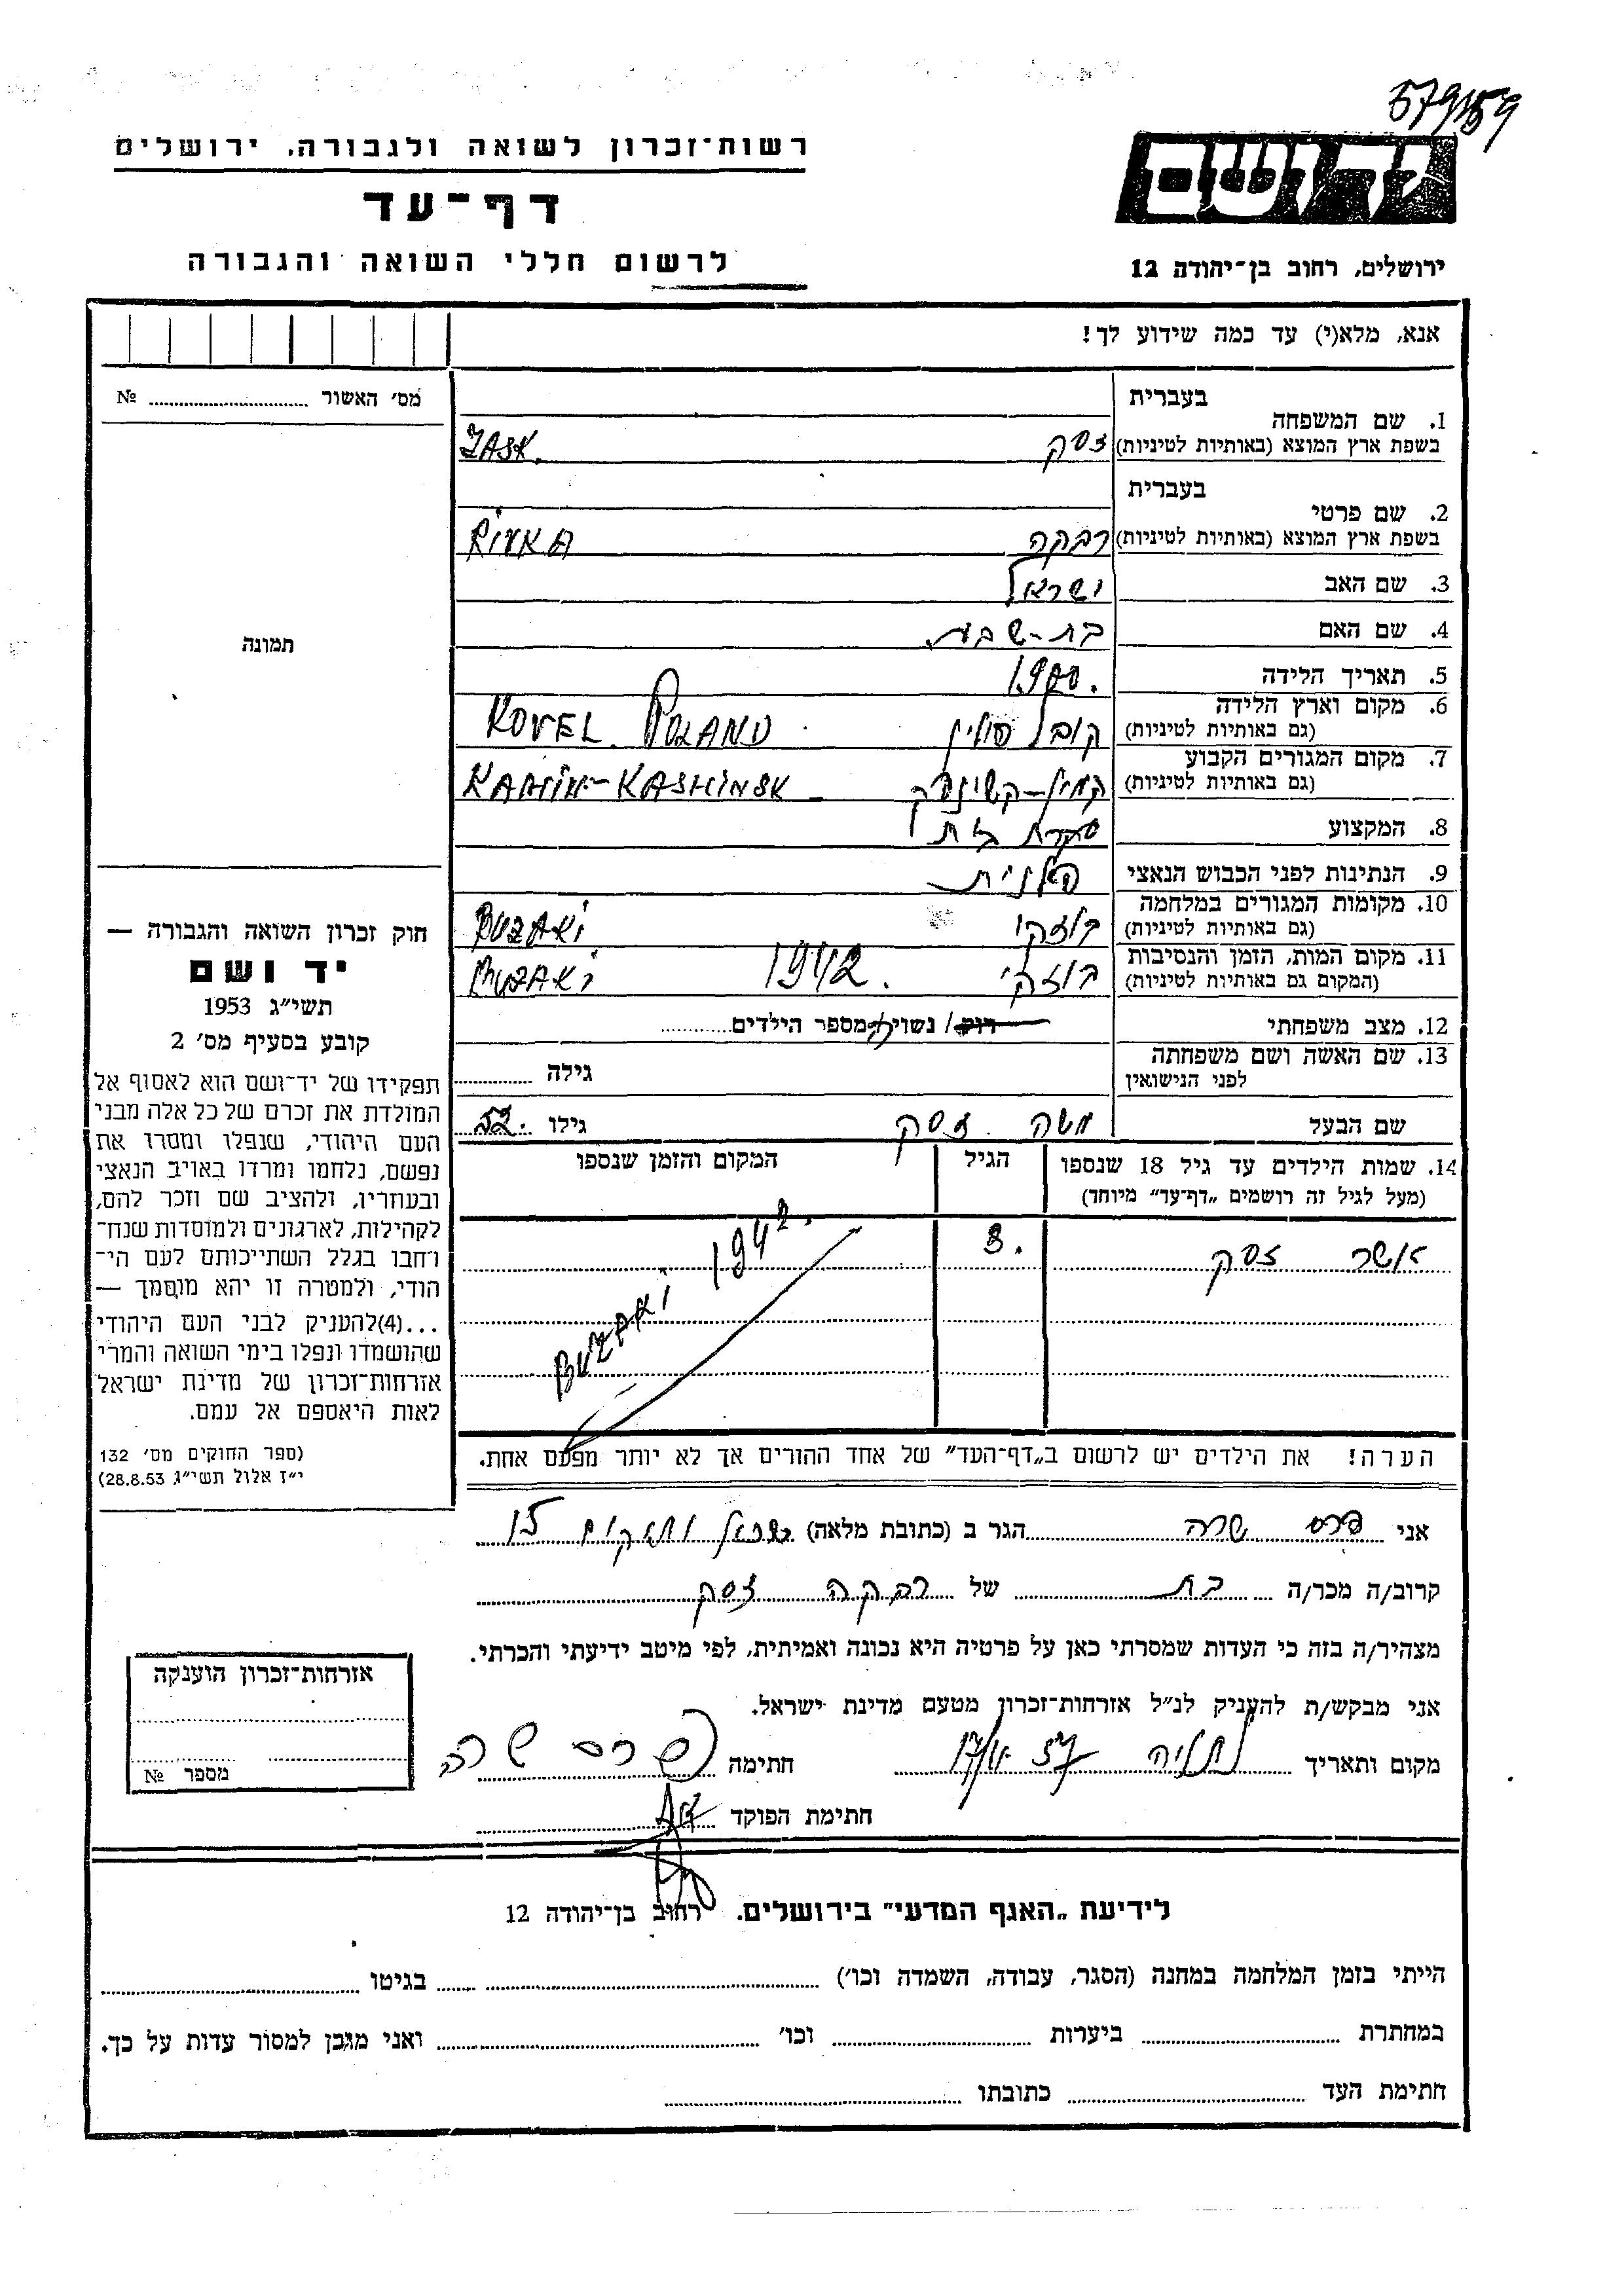 579159
רשות־זכרון לשואה ולגבורה, ירושלים
דף־עד
לרשום חללי השואה והגבורה
יד ושם
ירושלים, רחוב בן־יהודה 12
אנא, מלא(י) עד כמה שידוע לך!
מס׳ האשור № 
בעברית
1. שם המשפחה
בשפת ארץ המוצא (באותיות לטיניות) זסק ZASK.
בעברית
2. שם פרטי
בשפת ארץ המוצא (באותיות לטיניות) רבקה RIVKA
3. שם האב ישראל
4. שם האם בת-שבע.
5. תאריך הלידה 1900.
6. מקום וארץ הלידה
(גם באותיות לטיניות) קובל פולין KOVEL. POLAND
7. מקום המגורים הקבוע
(גם באותיות לטיניות) קמין-קשינסק KAMIN-KASHINSK
8. המקצוע עקרת בית
9. הנתינות לפני הכבוש הנאצי פולנית
10. מקומות המגורים במלחמה
(גם באותיות לטיניות) בוזקי BUZAKI
11. מקום המות, הזמן והנסיבות
(המקום גם באותיות לטיניות) בוזקי 1942. BUZAKI
12. מצב משפחתי רוק/ נשוי/ מספר הילדים
13. שם האשה ושם משפחתה
לפני הנישואין גילה
שם הבעל משה זסק גילו 52.
14. שמות הילדים עד גיל 18 שנספו
(מעל לגיל זה רושמים „דף־עד” מיוחד)
הגיל
המקום והזמן שנספו
אשר זסק 3. BUZAKI 1942.
הערה! את הילדים יש לרשום ב„דף־העד” של אחד ההורים אך לא יותר מפעם אחת.
תמונה
חוק זכרון השואה והגבורה —
יד ושם
תשי״ג 1953
קובע בסעיף מס׳ 2
תפקידו של יד־ושם הוא לאסוף אל
המולדת את זכרם של כל אלה מבני
העם היהודי, שנפלו ומסרו את
נפשם, נלחמו ומרדו באויב הנאצי
ובעוזריו, ולהציב שם וזכר להם,
לקהילות, לארגונים ולמוסדות שנח־
רבו בגלל השתייכותם לעם הי־
הודי, ולמטרה זו יהא מוסמך —
...(4) להעניק לבני העם היהודי
שהושמדו ונפלו בימי השואה והמרי
אזרחות־זכרון של מדינת ישראל
לאות היאספם אל עמם.
(ספר החוקים מס׳ 132
י״ז אלול תשי״ג 28.8.53)
אני פרס שרה הגר ב (כתובת מלאה) 15
קרוב/ה מכר/ה בת של רבקה זסק
מצהיר/ה בזה כי העדות שמסרתי כאן על פרטיה היא נכונה ואמיתית, לפי מיטב ידיעתי והכרתי.
אני מבקש/ת להעניק לנ״ל אזרחות־זכרון מטעם מדינת ישראל.
מקום ותאריך נתניה חתימה פרס שרה
חתימת הפוקד
אזרחות־זכרון הוענקה
מספר №
לידיעת „האגף המדעי” בירושלים. רחוב בן־יהודה 12
הייתי בזמן המלחמה במחנה (הסגר, עבודה, השמדה וכו׳) בגיטו
במחתרת ביערות וכו׳ ואני מוכן למסור עדות על כך.
חתימת העד כתובתו